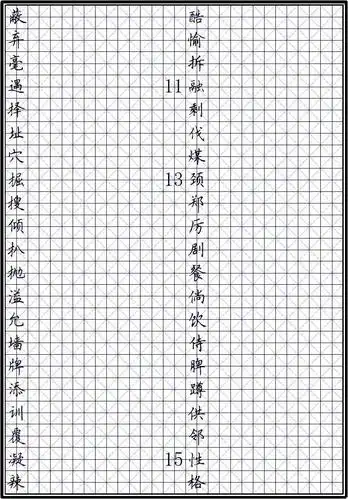 蔽
弃
毫
遇
择
址
穴
掘
搜
倾
扒
抛
溢
允
墙
牌
添
训
覆
凝
辣
酷
愉
拆
11 融
剩
伐
煤
13 颈
郑
厉
剧
餐
倘
饮
侍
脾
蹲
供
邻
15 性
格